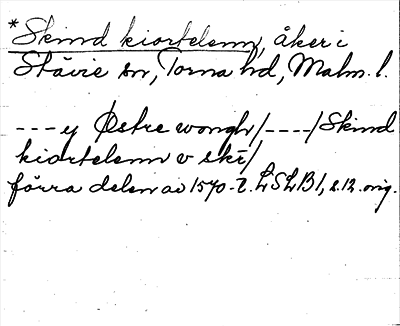 *Skind kiortelenn, åker i
Stävie sn, Torna hd, Malm. l.
---y Østre wongh/----/Skind
kiortelenn v skr/
förra delen av 1570-t. LSLB1, s.12. orig.